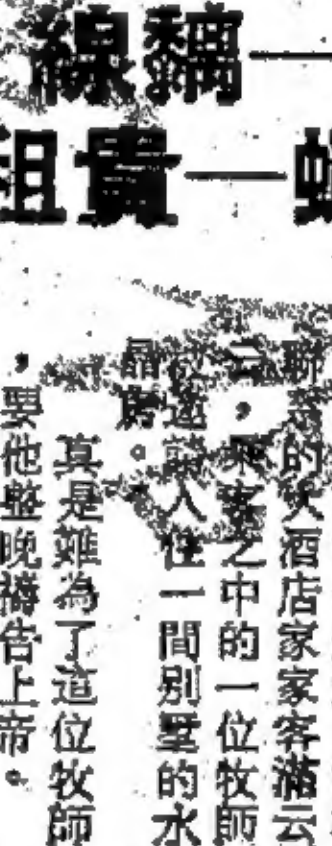 線黐一
租貴一
聯繫的大酒店家家客滿云
云，乘客之中的一位牧師
被邀請入住一間別墅的水
晶房。
真是難為了這位牧師
，要他整晚禱告上帝。